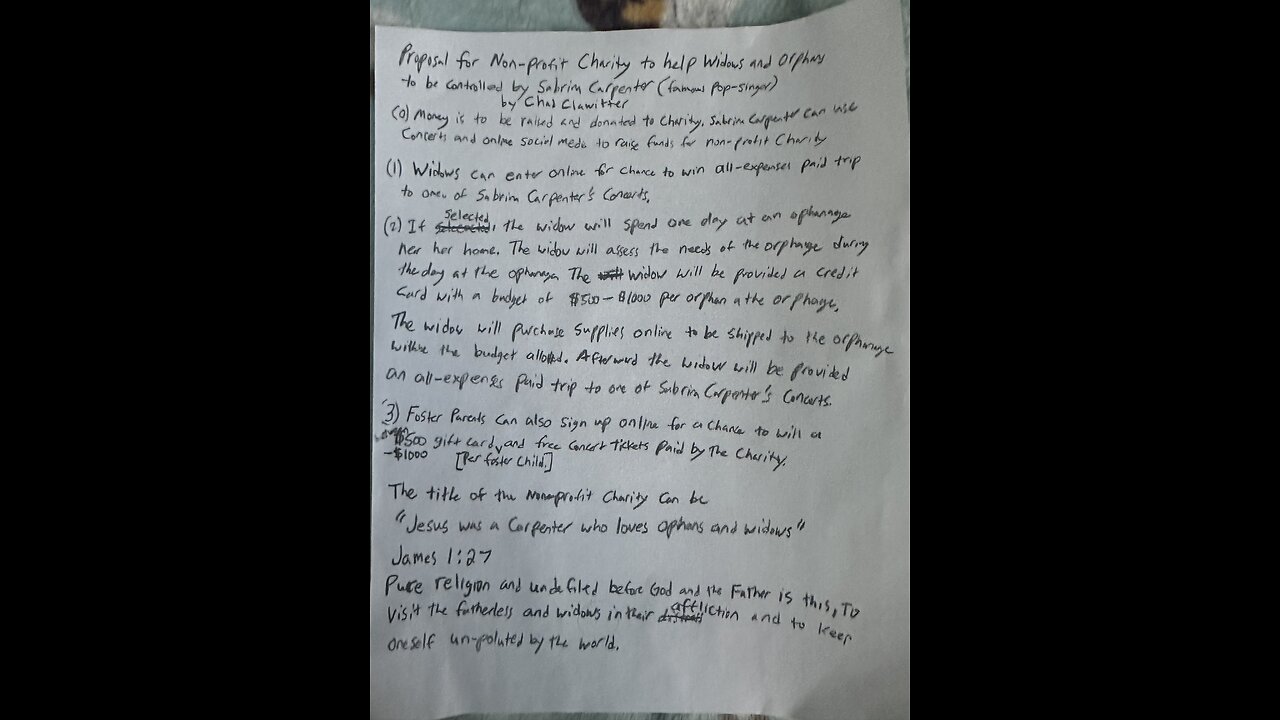 Proposal for Non-profit Charity to help Widows and Orphans
to be controlled by Sabrina Carpenter (famous pop-singer)
by Chad Clawitter
(0) Money is to be raised and donated to Charity. Sabrina Carpenter can use
Concerts and online social media to raise funds for non-profit Charity
(1) Widows can enter online for chance to win all-expenses paid trip
to one of Sabrina Carpenter's Concerts.
(2) If selected, the widow will spend one day at an ophanage
near her home. The widow will assess the needs of the orphange during
the day at the ophanage. The widow will be provided a credit
Card with a budget of $500-$1000 per orphan a the orphage.
The widow will purchase supplies online to be shipped to the orphanage
within the budget alloted. Afterward the widow will be provided
an all-expenses paid trip to one of Sabrina Carpenter's Concerts.
(3) Foster Parents can also sign up online for a chance to will a
$500 gift card, and free concert tickets paid by the Charity.
-$1000 [Per foster child.]
The title of the Nonprofit Charity Can be
"Jesus was a Carpenter who loves ophans and widows"
James 1:27
Pure religion and undefiled before God and the Father is this, To
visit the fatherless and widows in their affliction and to keep
oneself un-poluted by the world.